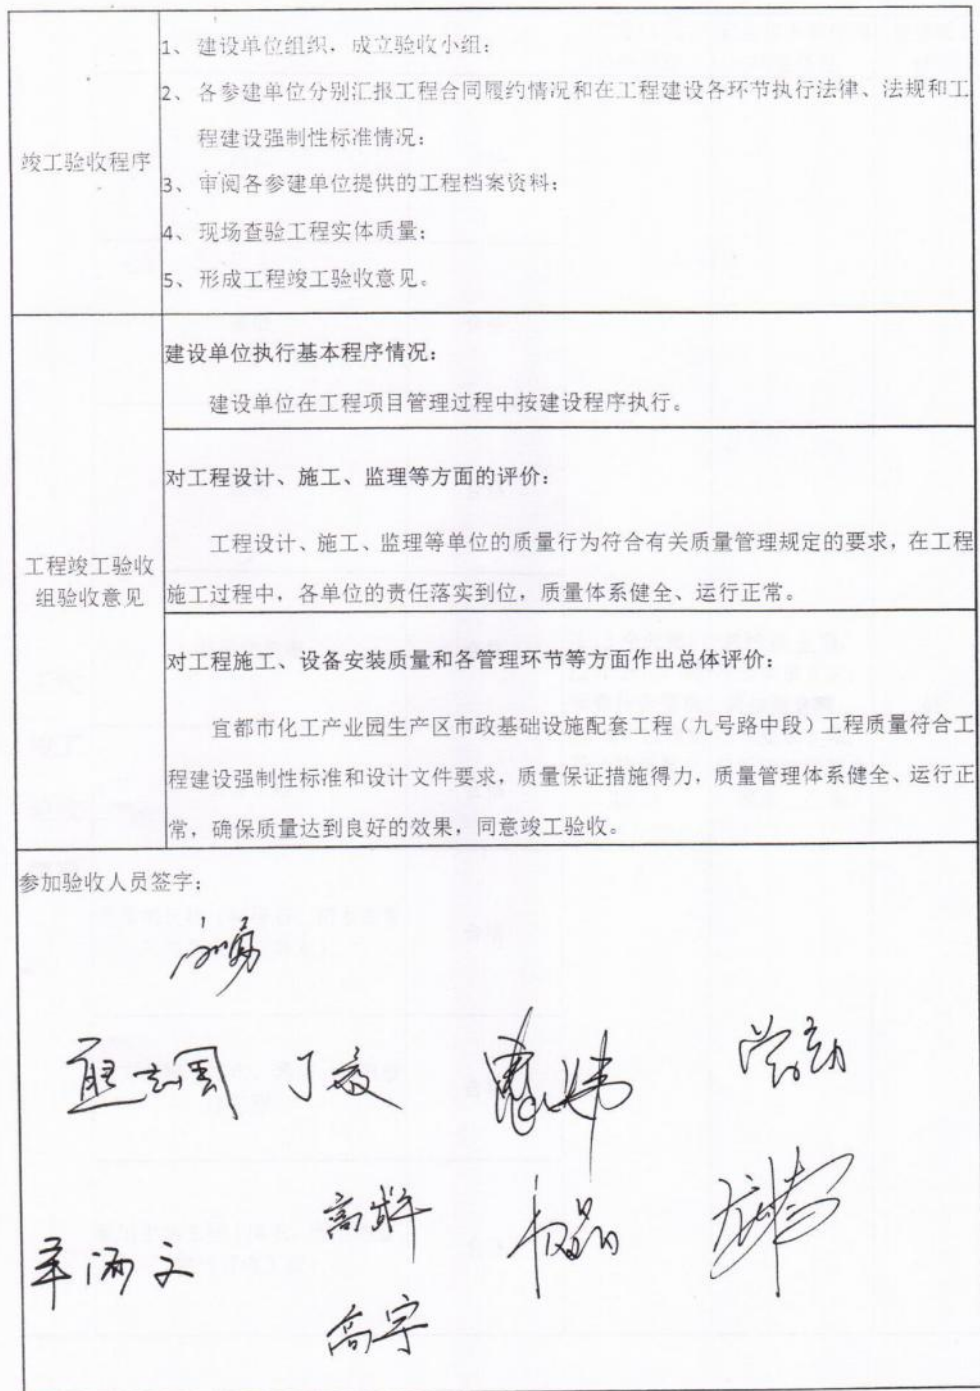 竣工验收程序
1、建设单位组织，成立验收小组；
2、各参建单位分别汇报工程合同履约情况和在工程建设各环节执行法律、法规和工
程建设强制性标准情况；
3、审阅各参建单位提供的工程档案资料；
4、现场查验工程实体质量；
5、形成工程竣工验收意见。
工程竣工验收
组验收意见
建设单位执行基本程序情况：
建设单位在工程项目管理过程中按建设程序执行。
对工程设计、施工、监理等方面的评价：
工程设计、施工、监理等单位的质量行为符合有关质量管理规定的要求，在工程
施工过程中，各单位的责任落实到位，质量体系健全、运行正常。
对工程施工、设备安装质量和各管理环节等方面作出总体评价：
宜都市化工产业园生产区市政基础设施配套工程（九号路中段）工程质量符合工
程建设强制性标准和设计文件要求，质量保证措施得力，质量管理体系健全、运行正
常，确保质量达到良好的效果，同意竣工验收。
参加验收人员签字：
高宇